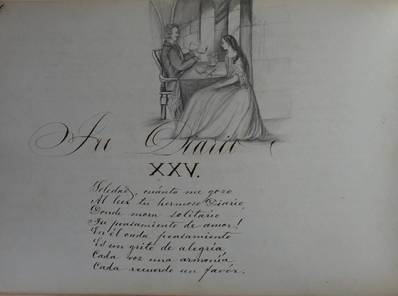 Tu Diario
XXV.
Soledad, cuánto me gozo
Al leer tu hermoso Diario,
Donde mora solitario
Tu pensamiento de amor!
En él cada pensamiento
Es un grito de alegria
Cada voz una armonía
Cada recuerdo un favór.